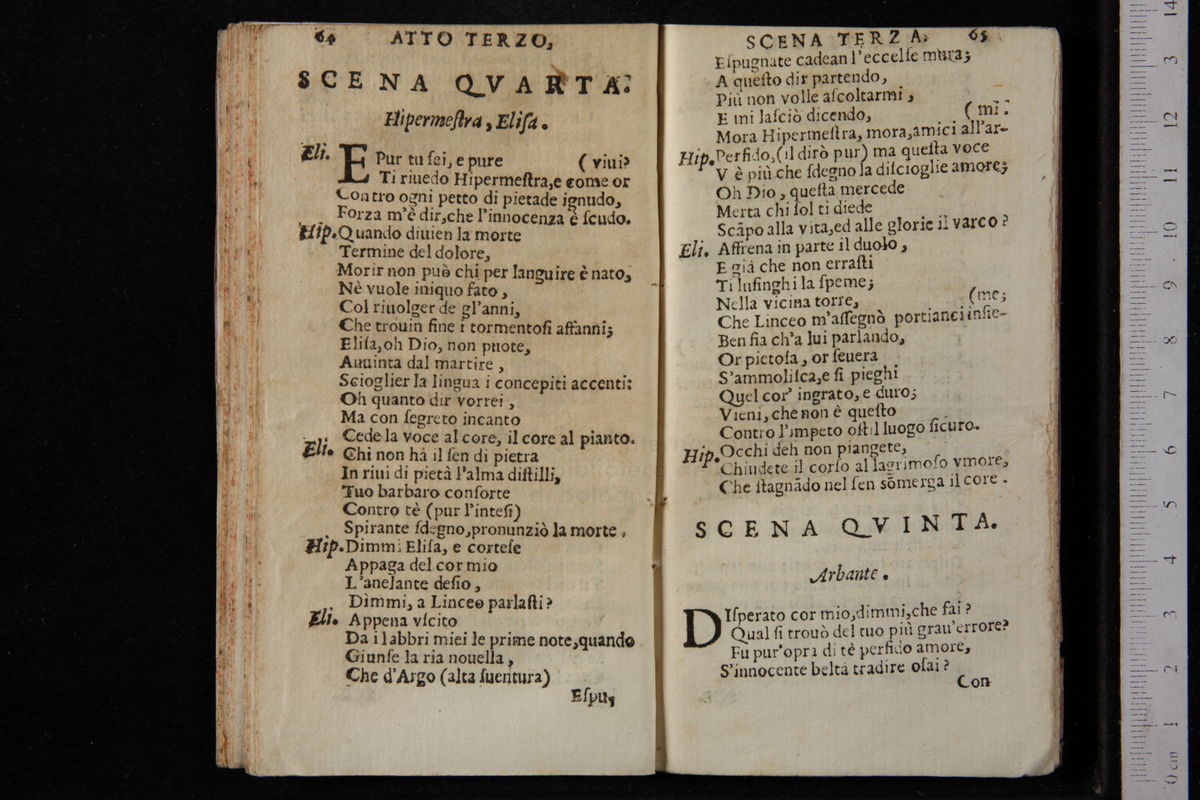 64 ATTO TERZO,
SCENA QVARTA.
Hipermeſtra, Eliſa.
Eli. E Pur tu ſei, e pure (viui?
Ti riuedo Hipermeſtra,e come or
Contro ogni petto di pietade ignudo,
Forza m'è dir,che l'innocenza è ſcudo.
Hip. Quando diuien la morte
Termine del dolore,
Morir non può chi per languire è nato,
Nè vuole iniquo fato,
Col riuolger de gl'anni,
Che trouin fine i tormentoſi affanni;
Eliſa,oh Dio, non puote,
Auuinta dal martire,
Scioglier la lingua i concepiti accenti:
Oh quanto dir vorrei,
Ma con ſegreto incanto
Cede la voce al core, il core al pianto.
Eli. Chi non hà il ſen di pietra
In riui di pietà l'alma diſtilli,
Tuo barbaro conſorte
Contro tè (pur l'inteſi)
Spirante ſdegno,pronunziò la morte.
Hip. Dimmi Eliſa, e corteſe
Appaga del cor mio
L'anelante deſio,
Dimmi, a Linceo parlaſti?
Eli. Appena vſcito
Da i labbri miei le prime note,quando
Giunſe la ria nouella,
Che d'Argo (alta ſuentura)
Eſpu-
SCENA TERZA. 65
Eſpugnate cadean l'eccelſe mura;
A queſto dir partendo,
Più non volle aſcoltarmi,
E mi laſciò dicendo, (mi.
Mora Hipermeſtra, mora,amici all'ar-
Hip. Perfido,(il dirò pur) ma queſta voce
V è più che ſdegno la diſcioglie amore;
Oh Dio, queſta mercede
Merta chi ſol ti diede
Scãpo alla vita,ed alle glorie il varco?
Eli. Affrena in parte il duolo,
E già che non erraſti
Ti luſinghi la ſpeme;
Nella vicina torre, (me;
Che Linceo m'aſſegnò portianci inſie-
Ben fia ch'a lui parlando,
Or pietoſa, or ſeuera
S'ammoliſca,e ſi pieghi
Quel cor' ingrato, e duro;
Vieni, che non è queſto
Contro l'impeto oſtil luogo ſicuro.
Hip. Occhi deh non piangete,
Chiudete il corſo al lagrimoſo vmore,
Che ſtagnãdo nel ſen sõmerga il core.
SCENA QVINTA.
Arbante.
DIſperato cor mio,dimmi,che fai?
Qual ſi trouò del tuo più grau'errore?
Fu pur'opra di tè perfido amore,
S'innocente beltà tradire oſai?
Con